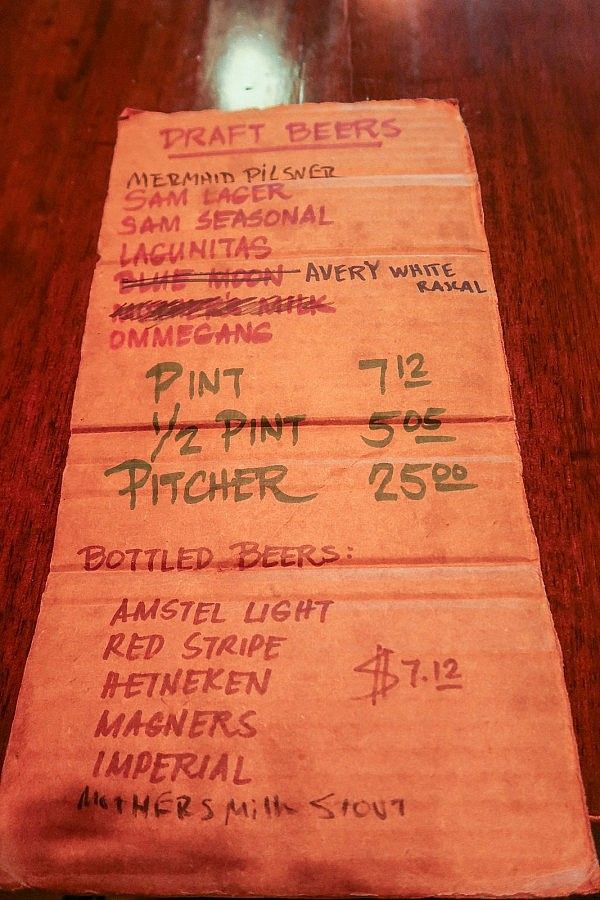 DRAFT BEERS
MERMAID PILSNER
SAM LAGER
SAM SEASONAL
LAGUNITAS
BLUE MOON AVERY WHITE
RASCAL
MILK
OMMEGANG
PINT 7 12
1/2 PINT 5 05
PITCHER 25 00
BOTTLED BEERS:
AMSTEL LIGHT
RED STRIPE
HEINEKEN $7.12
MAGNERS
IMPERIAL
MOTHERS MILK STOUT